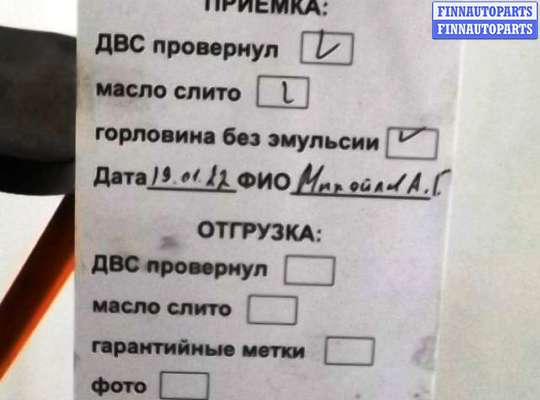 FINNAUTOPARTS
FINNAUTOPARTS
ПРИЕМКА:
ДВС провернул
масло слито
горловина без эмульсии
Дата 19.01.22 ФИО А.Г.
ОТГРУЗКА:
ДВС провернул
масло слито
гарантийные метки
фото